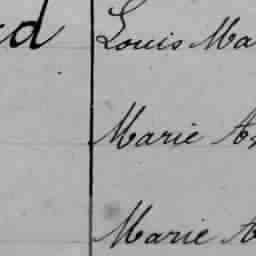 Louis Ma
Marie
Marie